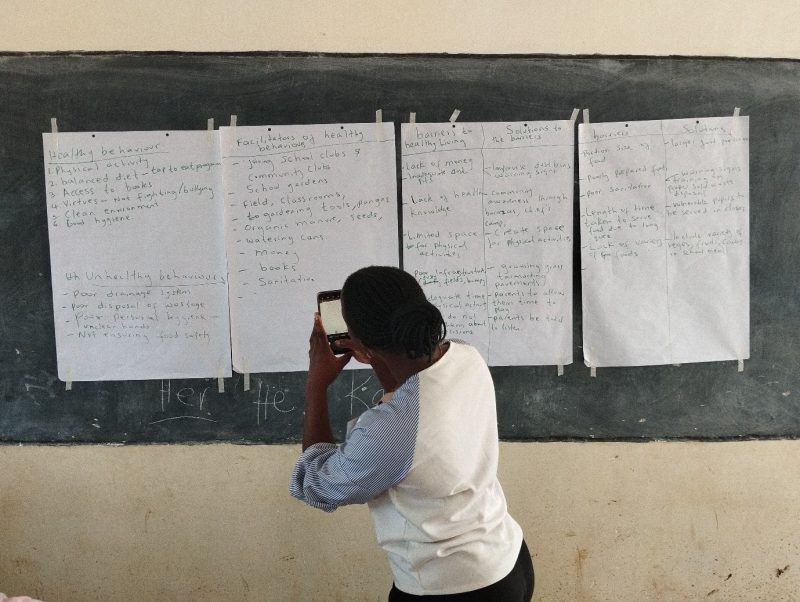 Healthy behaviour
1. Physical activity
2. balanced diet - tap to eat program
3. Access to books
4. Virtues - Not fighting/bullying
5. Clean environment
6. Good hygiene.
Unhealthy behaviours
- Poor drainage system
- Poor disposal of wastage
- Poor personal hygiene -
unclean hands
- Not ensuring food safety
Facilitators of healthy
behaviours
- Joining School clubs &
Community clubs
- School gardens
- Field, classrooms,
- gardening tools, pangas
- Organic manure, seeds,
- watering cans.
- Money
- books
- Sanitation
-
barriers to
healthy Living
- Lack of money
- Lack of health
knowledge
- Limited space
for physical
activities
Poor infrastructure
fields,
adequate time
physical activity
do not
about
decisions
Solutions to
the barriers
- dust bins,
warning signs
- Community
awareness through
barazas, chief's
camp,
- Create space
for physical activities,
- grass
pavements.
- Parents to allow
them time to
play
- parents be told
to listen.
barriers
- Portion size of
food
- Poorly prepared food
- poor sanitation
- Length of time
taken to serve
food due to long
- Lack of variety
of foods
Solutions
- larger
- warning signs
disposal
- Vulnerable pupils to
be served in class,
- Include variety of
on school meal
Her He Ka